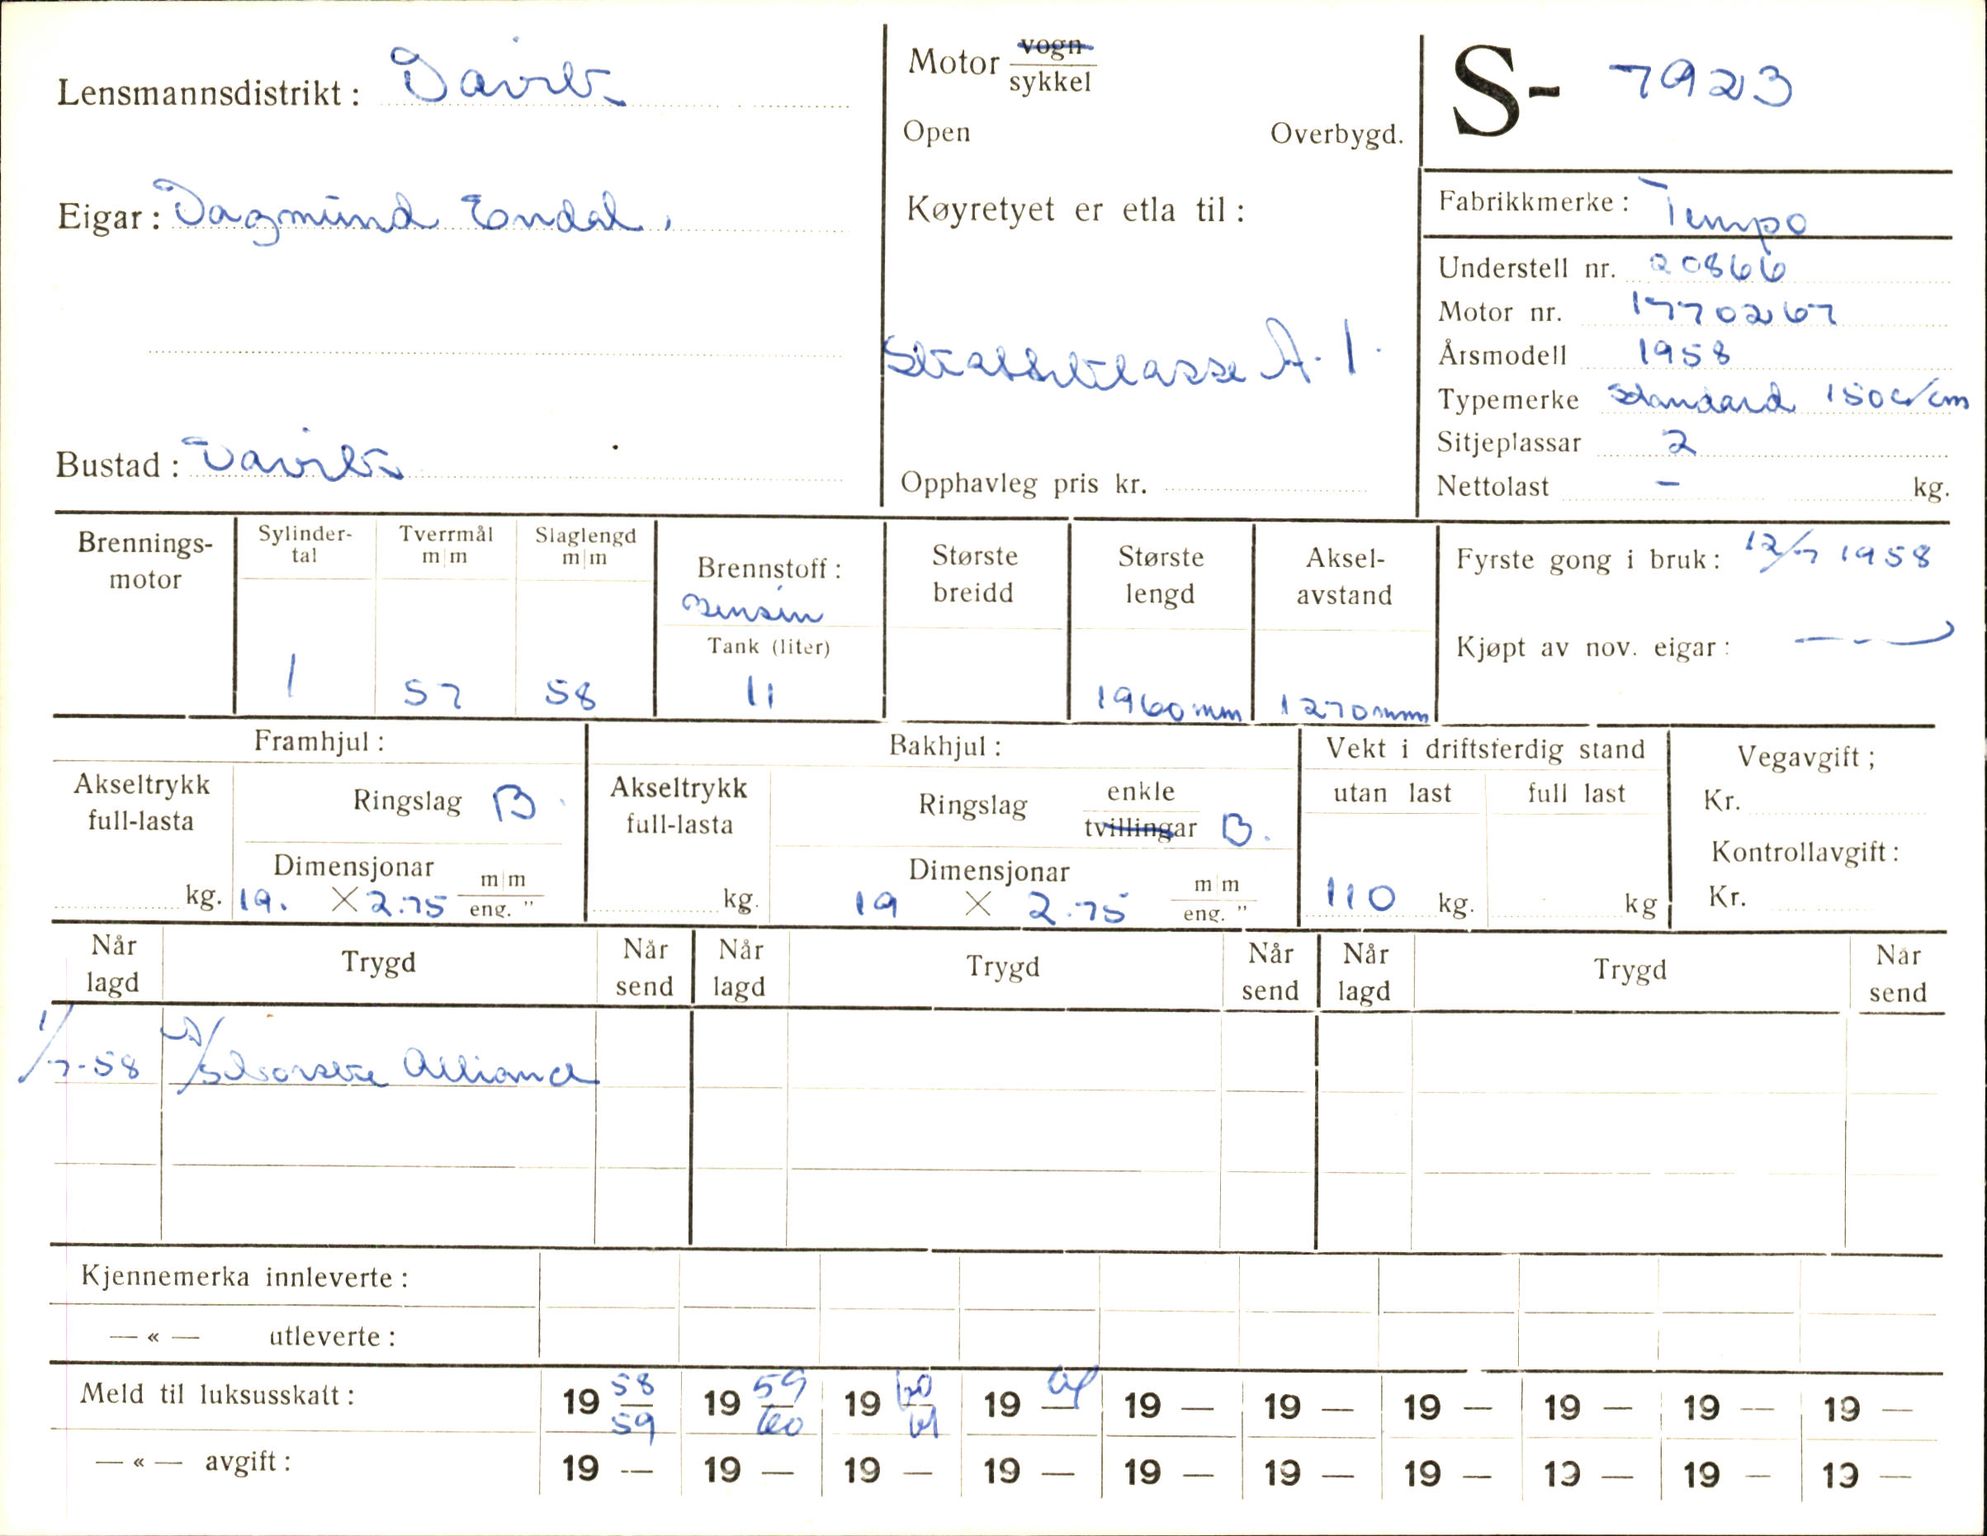 Lensmannsdistrikt: Davik
Eigar: Dagmund Endal.
Bustad: Davik
Motor vogn
sykkel
Open Overbygd.
Køyretyet er etla til:
Skatteklasse A. 1.
Opphavleg pris kr.
S- 7923
Fabrikkmerke: Tempo
Understell nr. 20866
Motor nr. 1770267
Årsmodell 1958
Typemerke Standard 150 c/cm
Sitjeplassar 2
Nettolast – kg.
Brennings-
motor
Sylinder-
tal
1
Tverrmål
m|m
57
Slaglengd
m|m
58
Brennstoff:
Bensin
Tank (liter)
11
Største
breidd
Største
lengd
1960mm
Aksel-
avstand
1270mm
Fyrste gong i bruk: 12/7 1958
Kjøpt av nov. eigar: — — —
Framhjul:
Akseltrykk
full-lasta
kg.
Ringslag B.
Dimensjonar
19. X 2.75 m|m
eng. "
Bakhjul:
Akseltrykk
full-lasta
kg.
Ringslag enkle
tvillingar B.
Dimensjonar
19 X 2.75 m|m
eng. "
Vekt i driftsferdig stand
utan last
110 kg.
full last
kg
Vegavgift;
Kr.
Kontrollavgift:
Kr.
Når
lagd
Trygd
Når
send
Når
lagd
Trygd
Når
send
Når
lagd
Trygd
Når
send
1/7-58 Norske Alliance
Kjennemerka innleverte:
— « — utleverte:
Meld til luksusskatt: 19 58/59 19 59/60 19 60/61 19 — 19 — 19 — 19 — 19 — 19 — 19 —
— « — avgift: 19 — 19 — 19 — 19 — 19 — 19 — 19 — 19 — 19 — 19 —